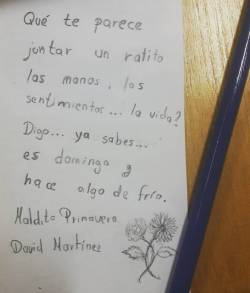 Qué te parece
juntar un ratito
las manos, los
sentimientos... la vida?
Digo... ya sabes...
es domingo y
hace algo de frío.
Maldita Primavera
David Martínez